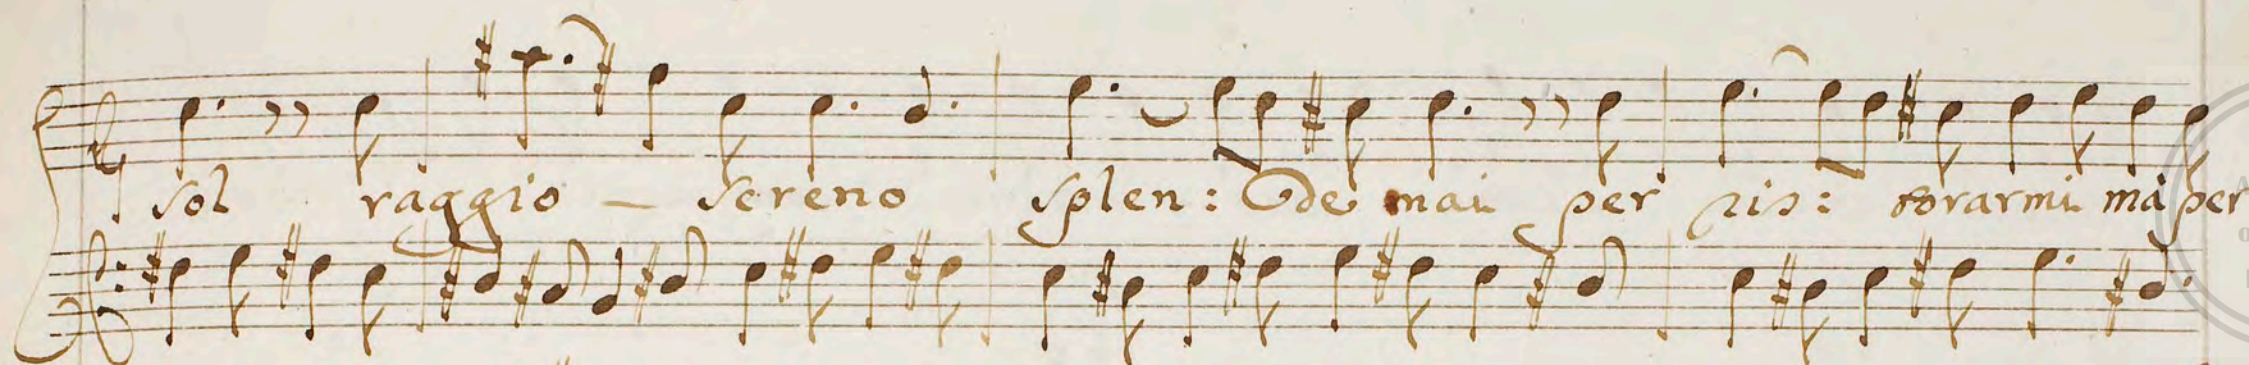 sol raggio – sereno splen: de mai per ris: torarmi mà per